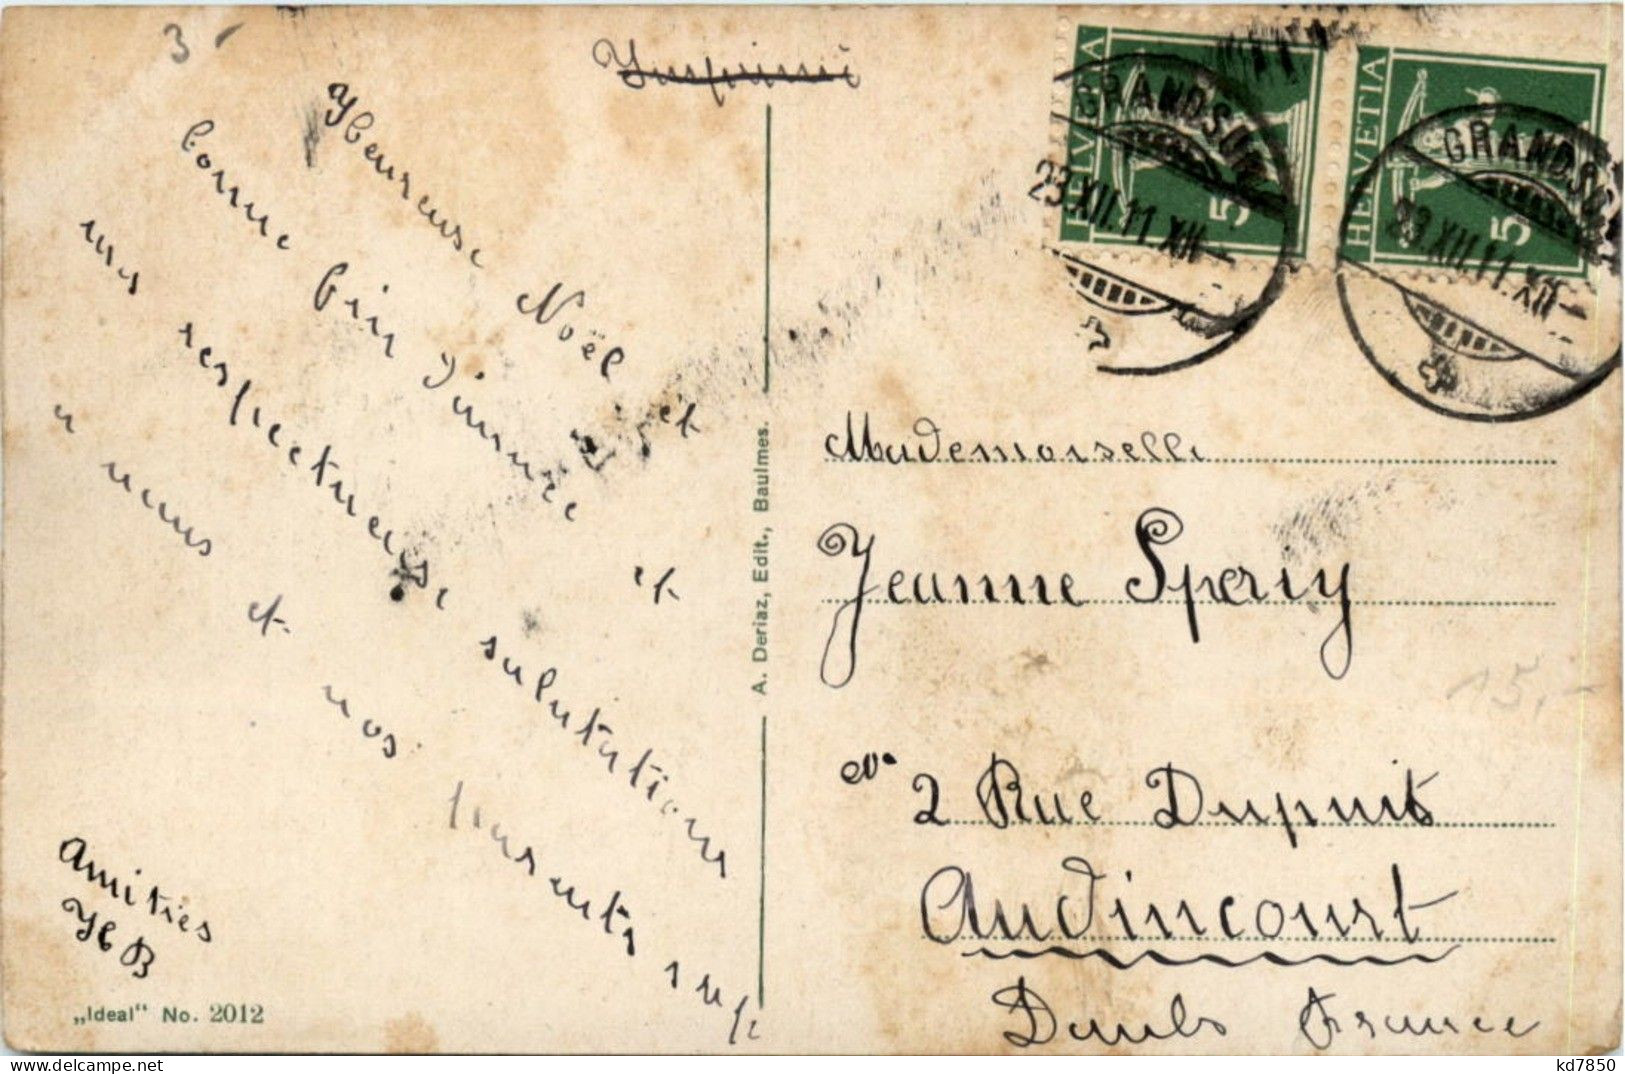 3
Imprimé
Heureuse Noël et
bonne fin d'année et
nos respectueuse salutations
a vous et nos
Amities
HB
„Ideal“ No. 2012
A. Deriaz, Edit., Baulmes.
HELVETIA 5
HELVETIA 5
GRANDSON
23.XII.11.XII–
GRANDSON
23.XII.11.XII–
Mademoiselle
Jeanne Speriy
N° 2 Rue Dupuis
Audincourt
Doubs France
15,-
delcampe.net
kd7850